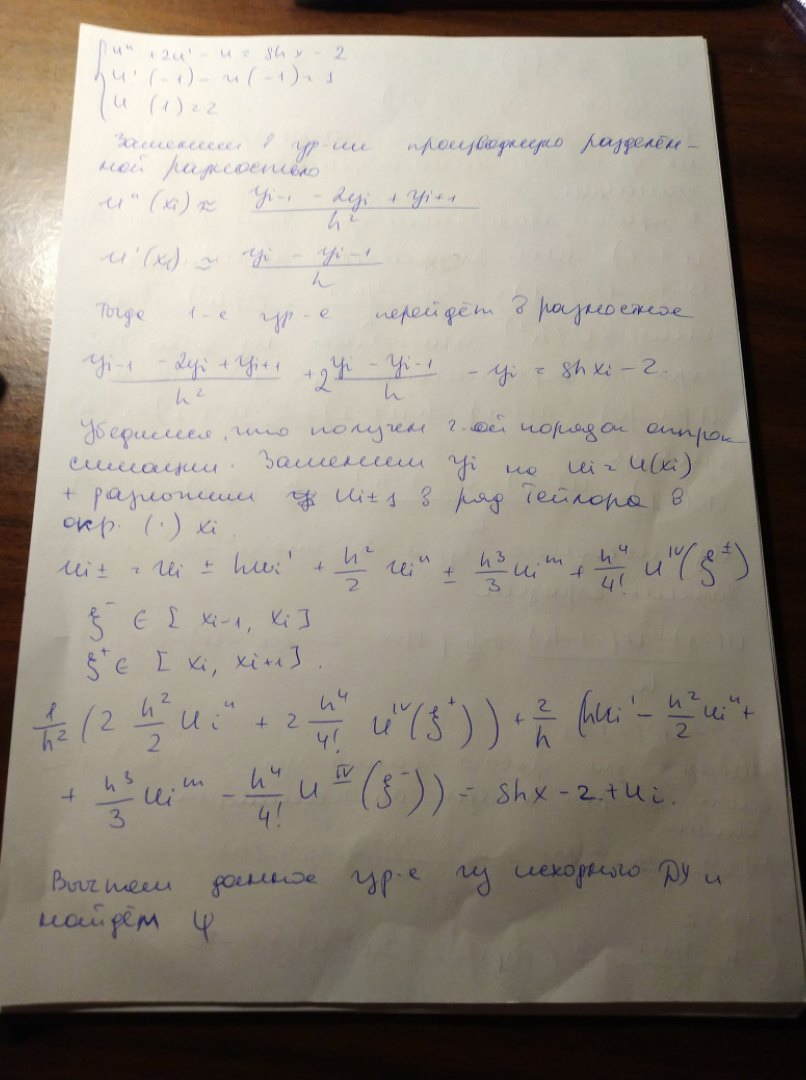 { u'' + 2u' - u = shx - 2
u'(-1) - u(-1) = 1
u (1) = 2
Заменим в ур-ии производную разделён-
ной разностью
u''(xi) ≈ (yi-1 - 2yi + yi+1) / h²
u'(xi) ≃ (yi - yi-1) / h
Тогда 1-е ур-е перейдёт в разностное
(yi-1 - 2yi + yi+1) / h² + 2 (yi - yi-1) / h - yi = shxi - 2.
Убедимся, что получен 2-ой порядок аппрок
симации. Заменим yi на ui = u(xi)
+ разложим ui±1 в ряд Тейлора в
окр. (·) xi
ui± = ui ± hui' + h²/2 ui'' ± h³/3 ui''' + h⁴/4! u^IV(ξ^±)
ξ⁻ ∈ [xi-1, xi]
ξ⁺ ∈ [xi, xi+1].
1/h² (2 h²/2 ui'' + 2 h⁴/4! u^IV(ξ⁺)) + 2/h (hui' - h²/2 ui'' +
+ h³/3 ui''' - h⁴/4! u^IV(ξ⁻)) = shx - 2 + ui.
Вычтем данное ур-е из исходного ДУ и
найдём ψ